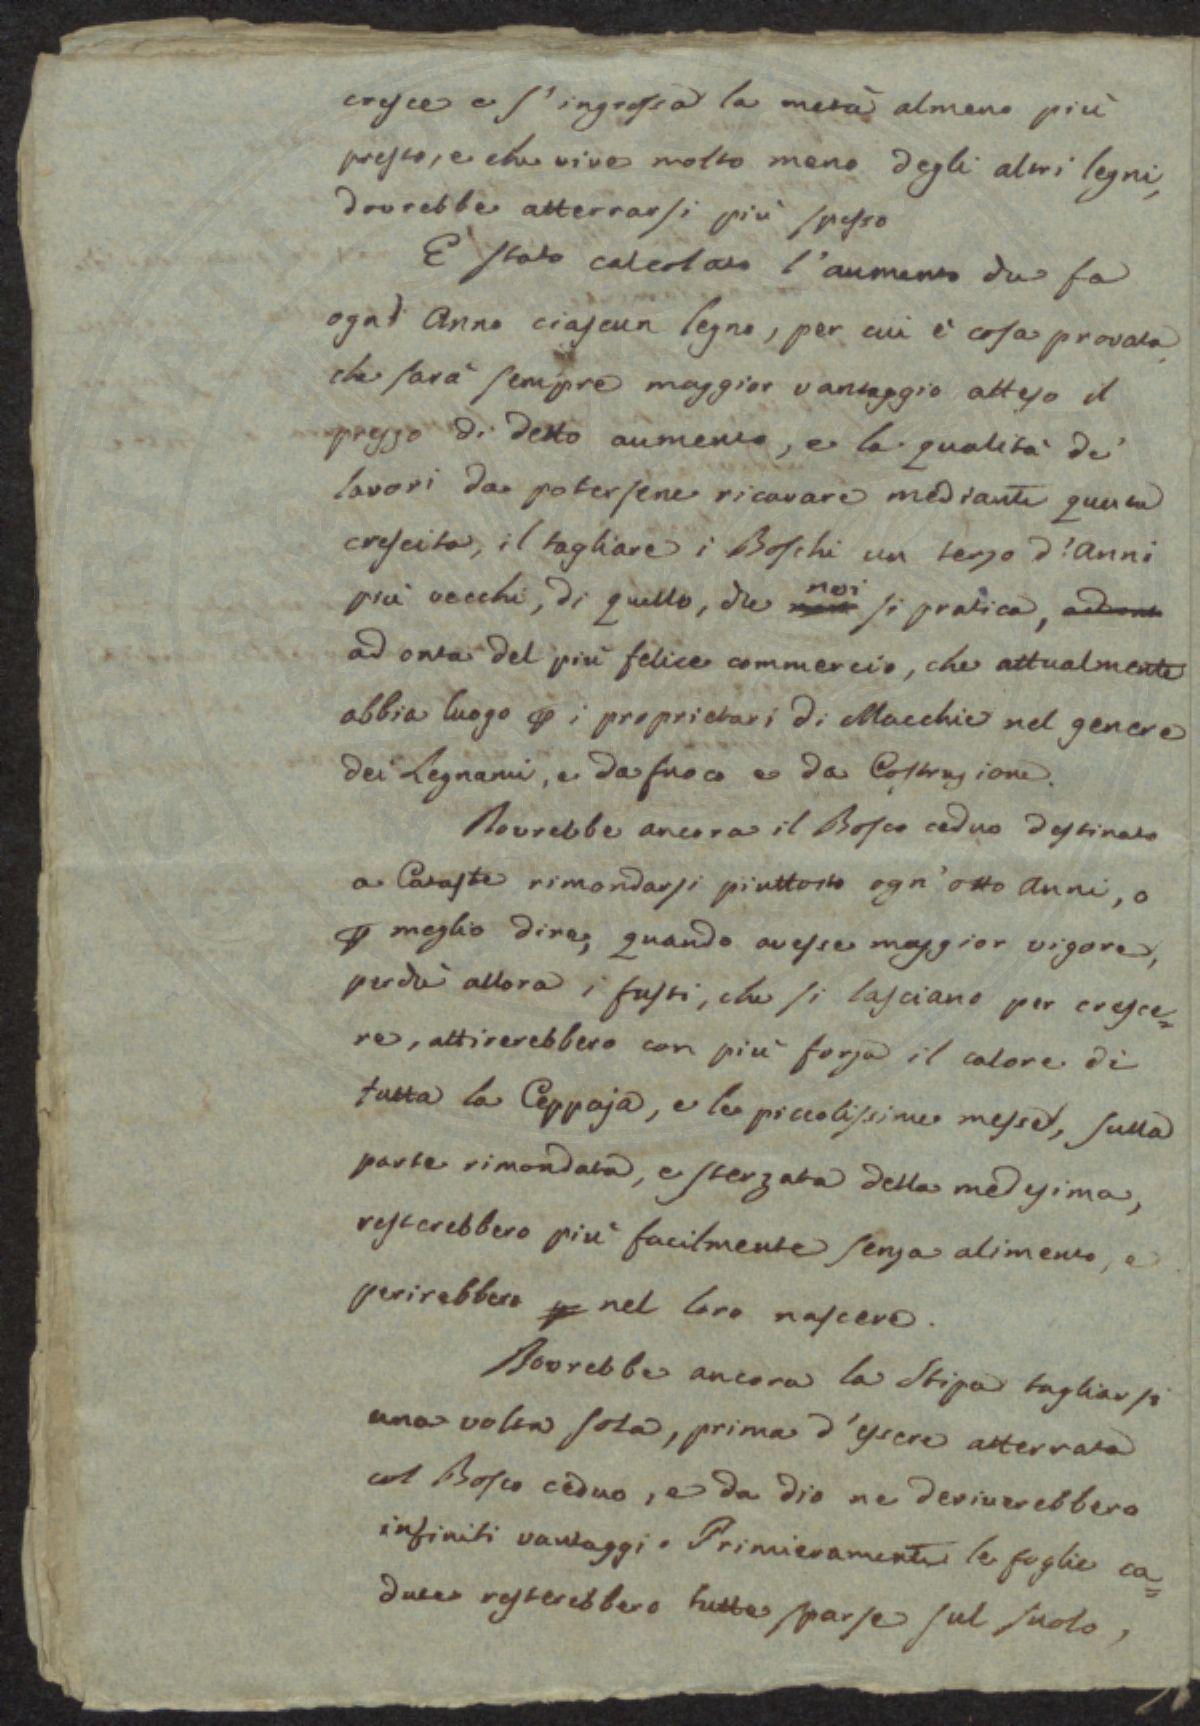 cresce e s'ingrossa la metà almeno più
presto, e che vive molto meno degli altri legni,
dovrebbe atterrarsi più spesso
E' stato calcolato l'aumento che fa
ogni Anno ciascun legno, per cui è cosa provata
che sarà sempre maggior vantaggio atteso il
prezzo di detto aumento, e la qualità de'
lavori da potersene ricavare mediante questa
crescita, il tagliare i Boschi un terzo d'Anni
più vecchi, di quello, che noi si pratica,
ad onta del più felice commercio, che attualmente
abbia luogo p i proprietari di Macchie nel genere
dei Legnami, e da fuoco e da Costruzione.
Dovrebbe ancora il Bosco ceduo destinato
a Cataste rimondarsi piuttosto ogn'otto Anni, o
p meglio dire, quando avesse maggior vigore,
perchè allora i fusti, che si lasciano per cresce=
re, attirerebbero con più forza il calore di
tutta la Ceppaja, e le piccolissime messe, sulla
parte rimondata, e sterzata della medesima,
resterebbero più facilmente senza alimento, e
perirebbero nel loro nascere.
Dovrebbe ancora la Stipa tagliarsi
una volta sola, prima d'essere atterrata
col Bosco ceduo, e da ciò ne deriverebbero
infiniti vantaggi. Primieramente le foglie ca=
dute resterebbero tutte sparse sul suolo,